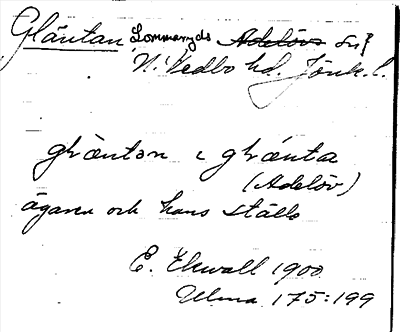 Gläntan Lommaryds Adelövs sn?
N. Vedbo hd. Jönk. l.
glæntən i glænta
(Adelöv)
ägaren och hans ställe
E. Ekwall 1900
Ulma 175:199